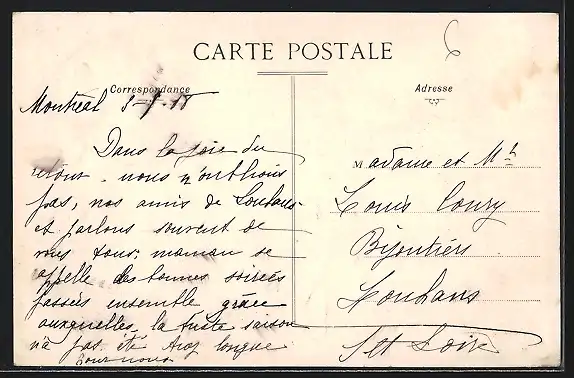 CARTE POSTALE
Correspondance
Adresse
Montréal
Dans la joie du
retour, nous n'oublions
pas, nos amis de Louhans
et parlons souvent de
vous tous; maman se
appelle des bonnes soirées
passées ensemble grâce
auxquelles, la triste saison
n'a pas été trop longue
pour nous
Madame et Mr
Louis
Bijoutiers
Louhans
S et Loire